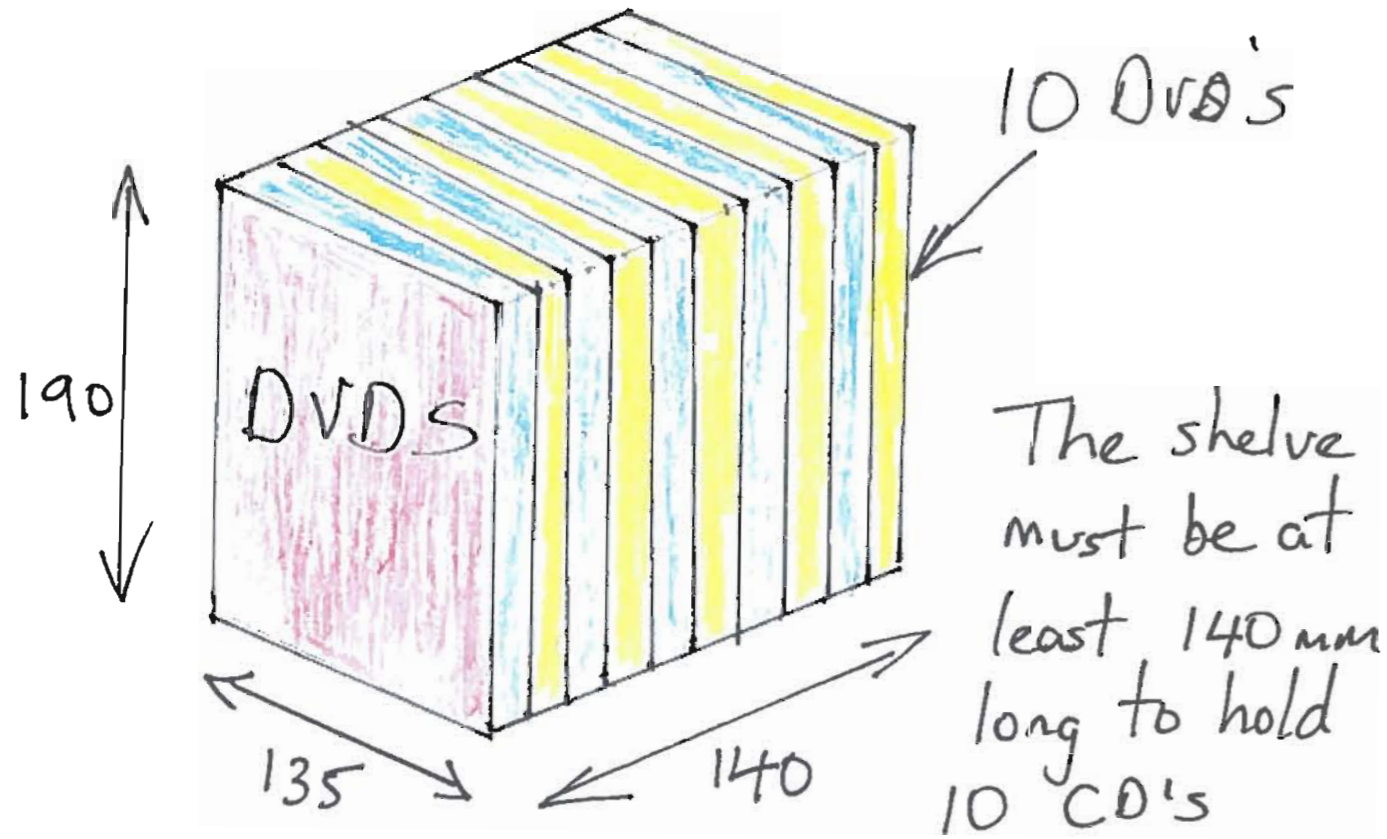 10 DVD's
190
DVDs
The shelve
must be at
least 140mm
long to hold
10 CD's
135
140